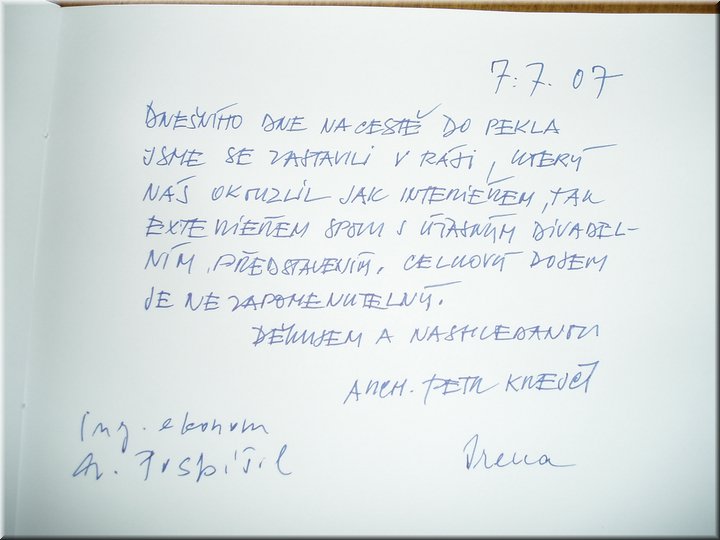 7.7.07
DNEŠNÍHO DNE NA CESTĚ DO PEKLA
JSME SE ZASTAVILI V RÁJI, KTERÝ
NÁS OKOUZLIL JAK INTERIÉREM, TAK
EXTERIÉREM SPOLU S ÚŽASNÝM DIVADEL-
NÍM PŘEDSTAVENÍM. CELKOVÝ DOJEM
JE NEZAPOMENUTELNÝ.
DĚKUJEM A NASHLEDANOU
ARCH. PETR KREJČÍ
Ing. ekonom
Pospíšil
Irena